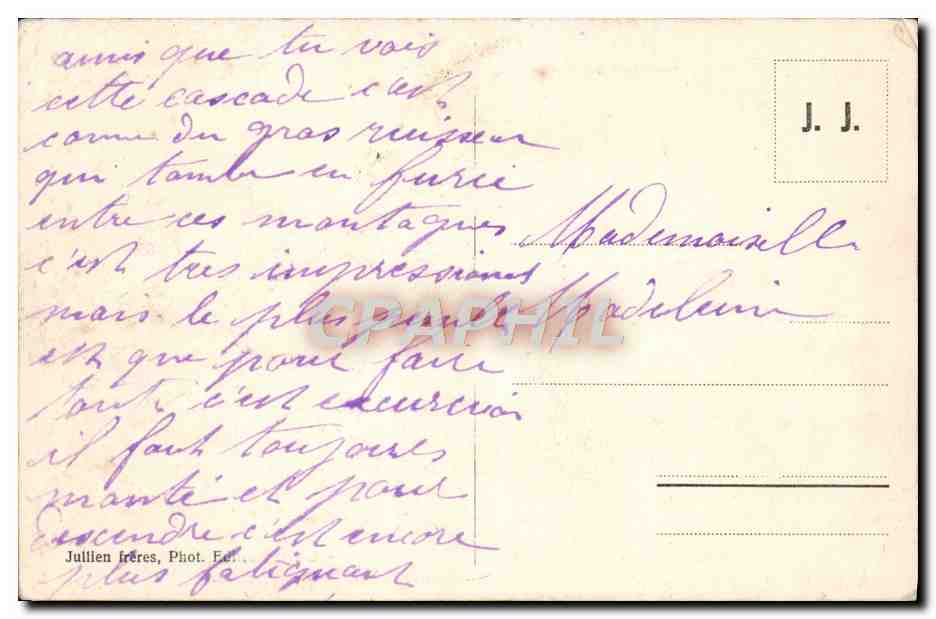 ainsi que tu vois
cette cascade c'est
come du gros ruisseau
qui tombe en furie
entre ces montagnes
c'est tres impressionnet
mais le plus
est que pour faire
tout c'est excurcions
il faut toujours
monté et pour
descendre c'est encore
plus fatiguant
J. J.
Mademoiselle
Madeleine
CPAPHIL
Jullien frères, Phot. Edit.